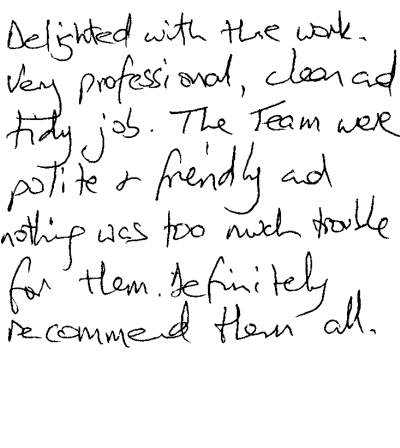 Delighted with the work.
Very professional, clean and
tidy job. The Team were
polite & friendly and
nothing was too much trouble
for them. Definitely
recommend them all.